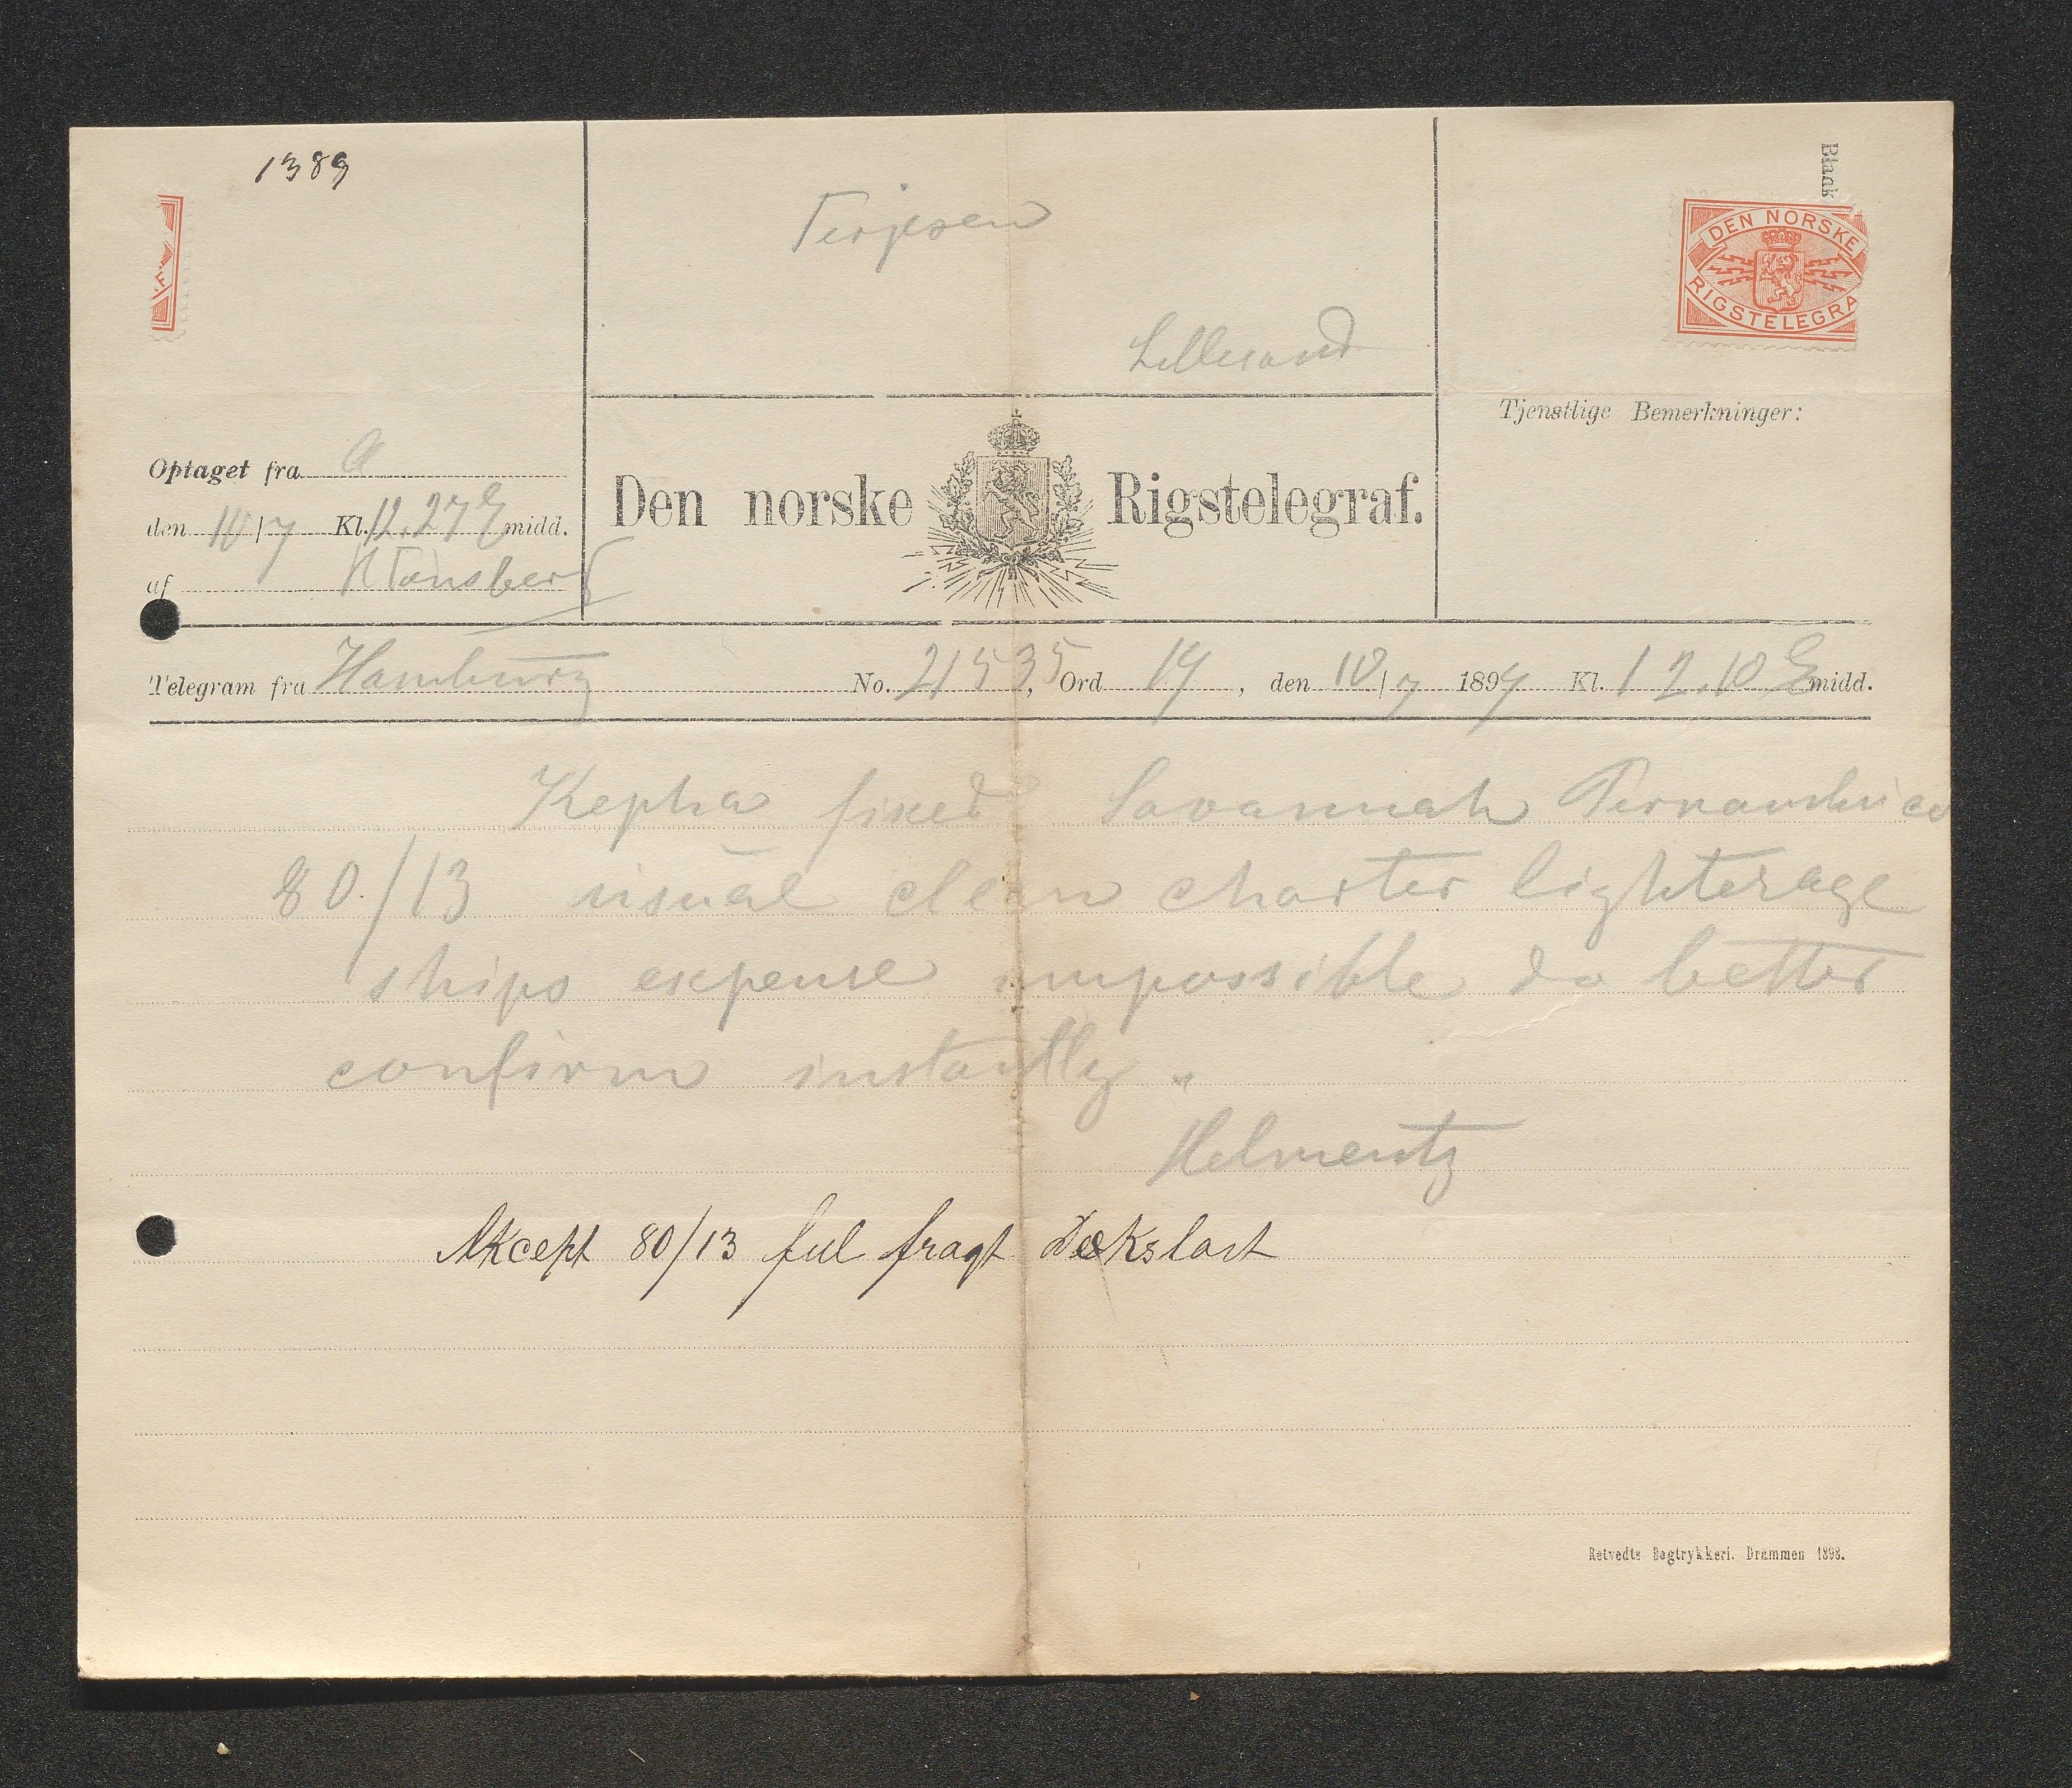 1389
Terjesen
Lillesand
Black
DEN NORSKE
RIGSTELEGRA
F
Tjenstlige Bemerkninger:
Optaget fra A
den 10/7 Kl. 12.27 E midd.
af HTønsberg
Den norske Rigstelegraf.
Telegram fra Hamburg No. 21535, Ord 19, den 10/7 1899 Kl. 12.10 E midd.
Kepha fixed Savannah Pernambuco
80/13 usual clean charter lighterage
ships expense impossible do better
confirm instantly "
Helmentz
Akcept 80/13 ful fragt Dækslast
Retvedts Bogtrykkeri. Drammen 1898.